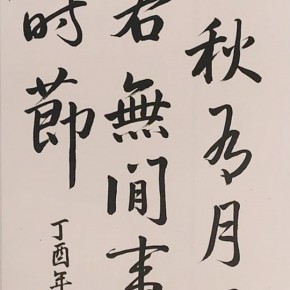 秋有月
若無間事
时節
丁酉年